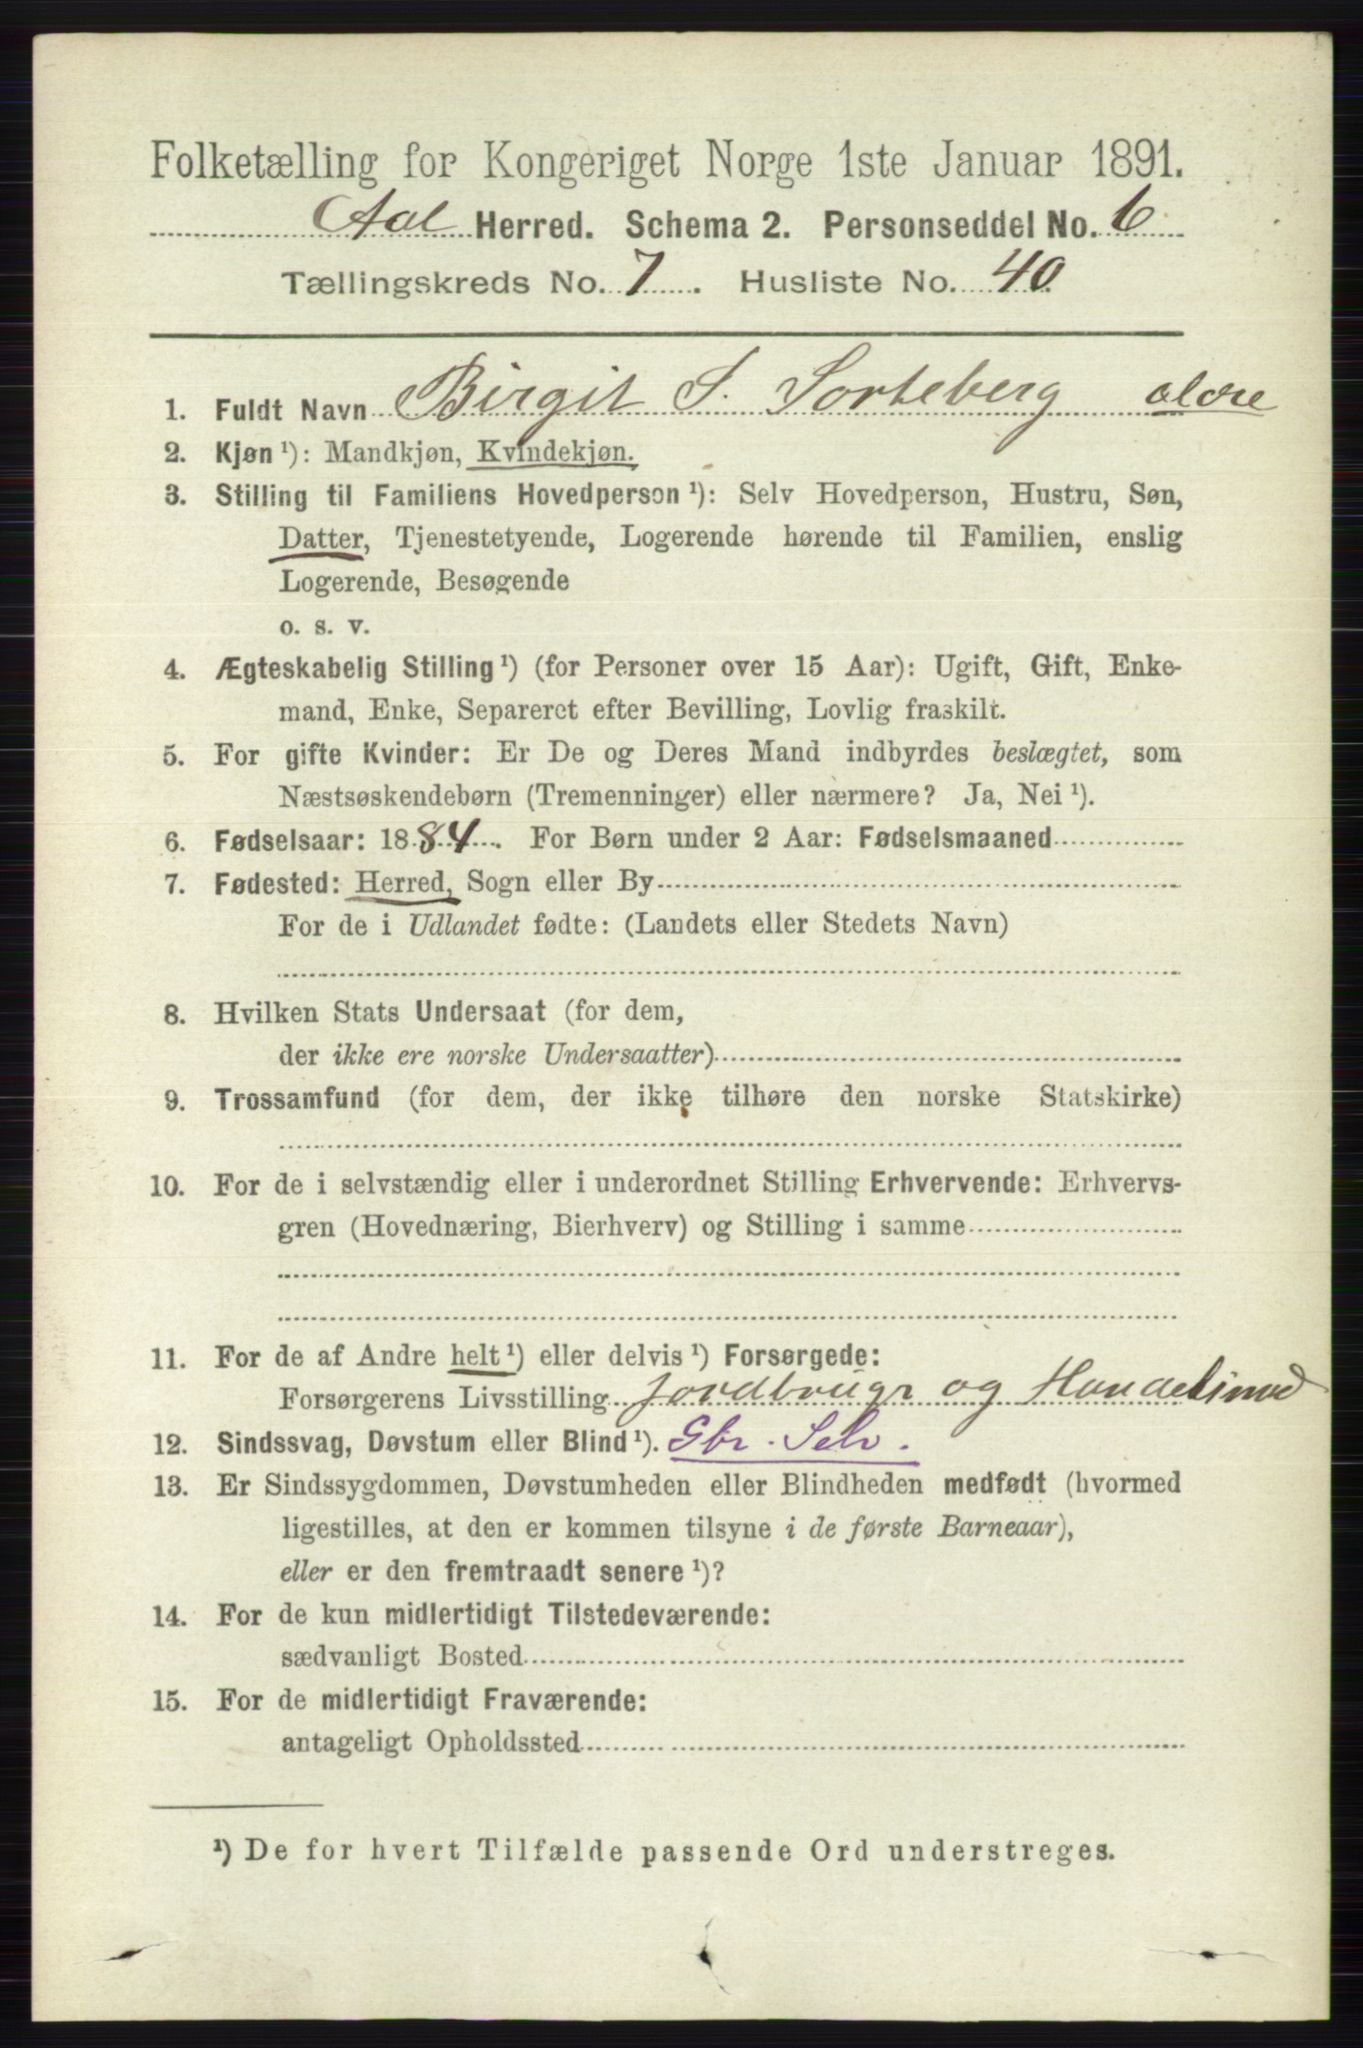 Folketælling for Kongeriget Norge 1ste Januar 1891.
Aal Herred. Schema 2. Personseddel No. 6
Tællingskreds No. 7. Husliste No. 40
1. Fuldt Navn Birgit S. Sorteberg ældre
2. Kjøn ¹): Mandkjøn, Kvindekjøn.
3. Stilling til Familiens Hovedperson ¹): Selv Hovedperson, Hustru, Søn,
Datter, Tjenestetyende, Logerende hørende til Familien, enslig
Logerende, Besøgende
o. s. v.
4. Ægteskabelig Stilling ¹) (for Personer over 15 Aar): Ugift, Gift, Enke-
mand, Enke, Separeret efter Bevilling, Lovlig fraskilt.
5. For gifte Kvinder: Er De og Deres Mand indbyrdes beslægtet, som
Næstsøskendebørn (Tremenninger) eller nærmere? Ja, Nei ¹).
6. Fødselsaar: 1884. For Børn under 2 Aar: Fødselsmaaned
7. Fødested: Herred, Sogn eller By
For de i Udlandet fødte: (Landets eller Stedets Navn)
8. Hvilken Stats Undersaat (for dem,
der ikke ere norske Undersaatter)
9. Trossamfund (for dem, der ikke tilhøre den norske Statskirke)
10. For de i selvstændig eller i underordnet Stilling Erhvervende: Erhvervs-
gren (Hovednæring, Bierhverv) og Stilling i samme
11. For de af Andre helt ¹) eller delvis ¹) Forsørgede:
Forsørgerens Livsstilling Jordbrugr og
12. Sindssvag, Døvstum eller Blind ¹). Gbr. Selv.
13. Er Sindssygdommen, Døvstumheden eller Blindheden medfødt (hvormed
ligestilles, at den er kommen tilsyne i de første Barneaar),
eller er den fremtraadt senere ¹)?
14. For de kun midlertidigt Tilstedeværende:
sædvanligt Bosted
15. For de midlertidigt Fraværende:
antageligt Opholdssted
¹) De for hvert Tilfælde passende Ord understreges.